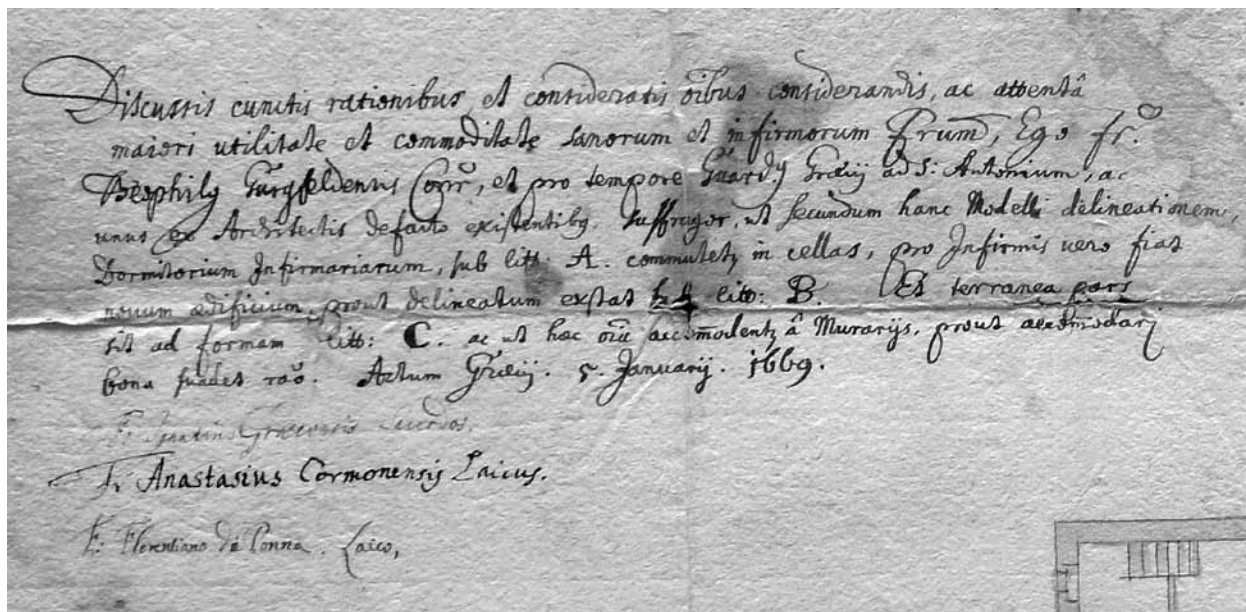 Discussis cunctis rationibus, et consideratis oībus considerandis, ac attentâ
maiori utilitate et commoditate sanorum et infirmorum Frum̄, Ego fr.
Theophilꝯ Gurgfeldensis Conr̄, et pro tempore Guardꝯ Græcij ad S: Antonium, ac
unus ex Architectis defacto existentibꝯ suffragor, ut secundum hanc Modelli delineationem,
Dormitorium Infirmariarum, sub litt: A. commutetꝫ in cellas, pro Infirmis vero fiat
novum ædificium, prout delineatum exstat litt: B. Et terranea pars
sit ad formam litt: C. ac ut hæc oīa accom̄odentꝫ â Murarijs, prout accom̄odari
bona suadet rāo. Actum Græcij. 5. Januarij. 1669.
F: Græcensis
Fr. Anastasius Cormonensis Laicus.
F: Florentiano da Ponna. Laico,